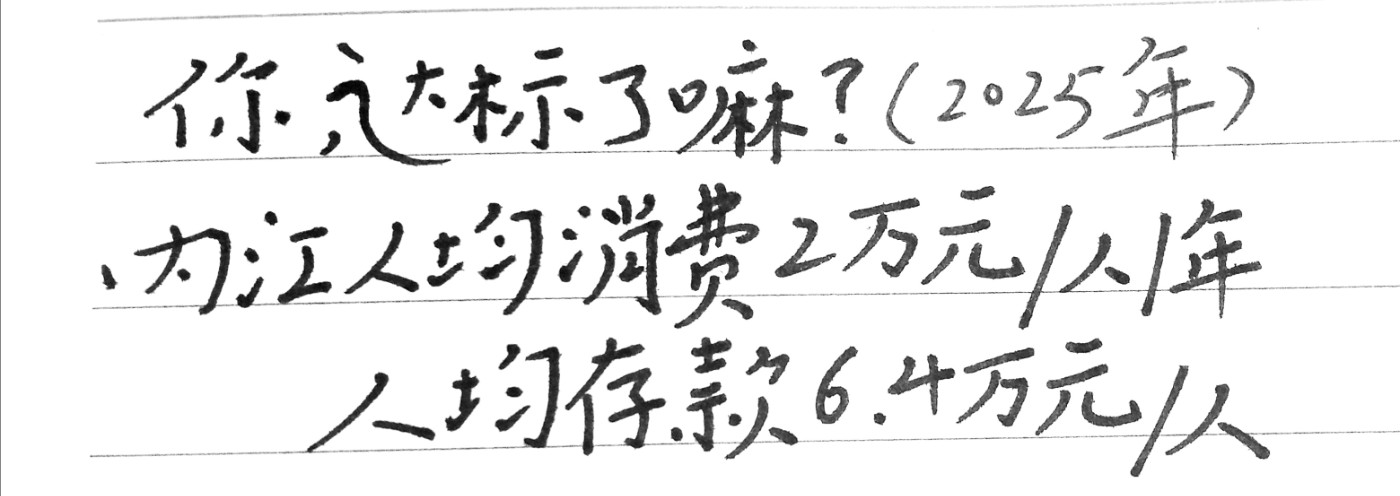 你达标了嘛？（2025年）
、内江人均消费2万元/人/年
人均存款6.4万元/人